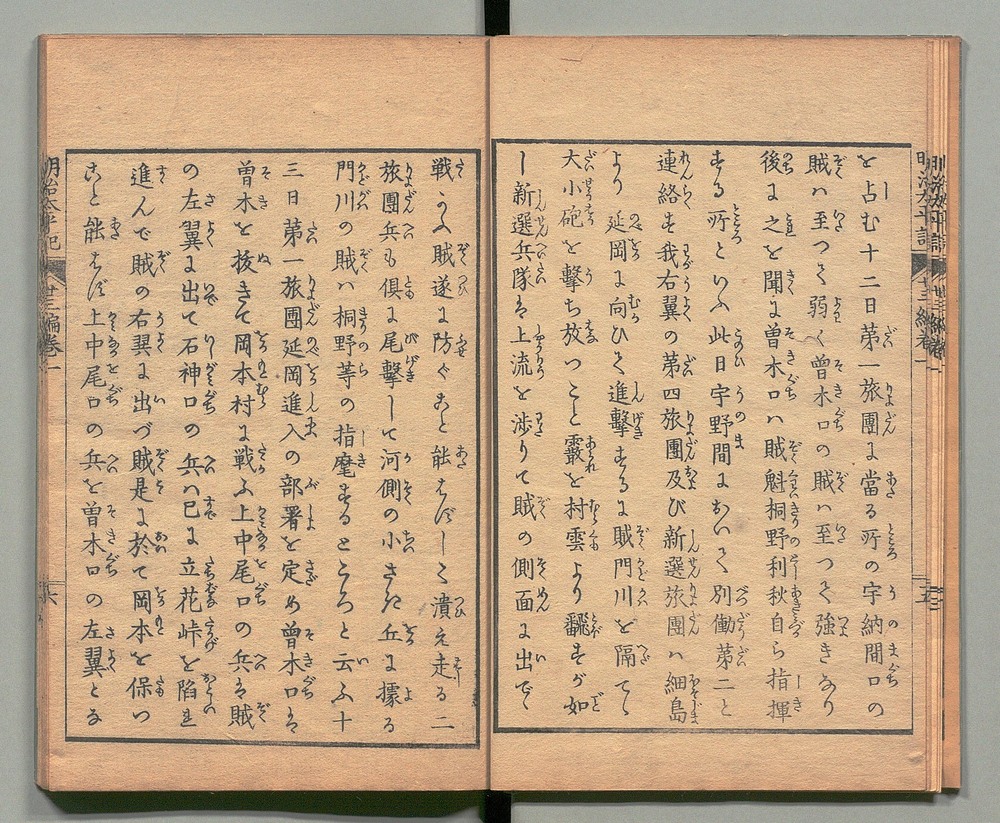 を占む十二日第一旅團に當る所の宇納間口の
賊ハ至つて弱く曽木口の賊ハ至つて強きあり
後に之を聞に曽木口ハ賊魁桐野利秋自ら指揮
する所といふ此日宇野間に於いて別働第二と
連絡せ我右翼の第四旅團及び新選旅團ハ細島
より延岡に向ひて進撃するに賊門川を隔てゝ
大小砲を擊ち放つこと霰を村雲より飜すが如
し新選兵隊ハ上流を渉りて賊の側面に出でゝ
戦ふ賊遂に防ぐこと能はずして潰え走る二
旅團兵も倶に尾擊して河側の小さき丘に據る
門川の賊ハ桐野等の指麾するところと云ふ十
三日第一旅團延岡進入の部署を定め曽木口ハ
曽木を抜きて岡本村に戦ふ上中尾口の兵ハ賊
の左翼に出て石神口の兵ハ已に立花峠を陷れ
進んで賊の右翼に出づ賊是に於て岡本を保つ
こと能はず上中尾口の兵と曽木口の左翼とな
明治太平記
廿三編巻一
六